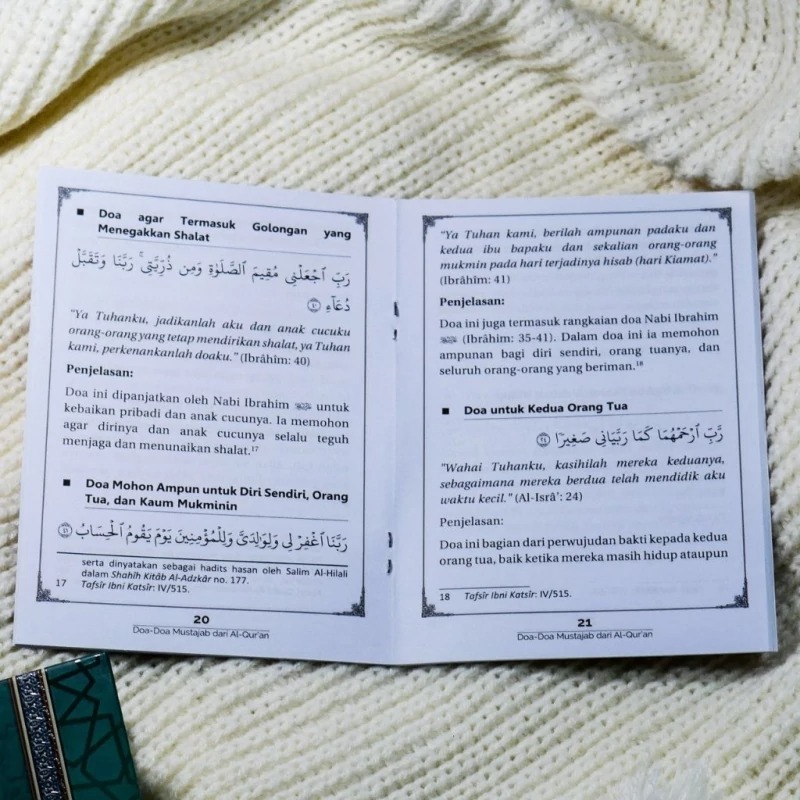 ■ Doa agar Termasuk Golongan yang
Menegakkan Shalat
رَبِّ ٱجْعَلْنِى مُقِيمَ ٱلصَّلَوٰةِ وَمِن ذُرِّيَّتِى ۚ رَبَّنَا وَتَقَبَّلْ
دُعَآءِ ٤٠
"Ya Tuhanku, jadikanlah aku dan anak cucuku
orang-orang yang tetap mendirikan shalat, ya Tuhan
kami, perkenankanlah doaku." (Ibrâhîm: 40)
Penjelasan:
Doa ini dipanjatkan oleh Nabi Ibrahim untuk
kebaikan pribadi dan anak cucunya. Ia memohon
agar dirinya dan anak cucunya selalu teguh
menjaga dan menunaikan shalat.¹⁷
■ Doa Mohon Ampun untuk Diri Sendiri, Orang
Tua, dan Kaum Mukminin
رَبَّنَا ٱغْفِرْ لِى وَلِوَٰلِدَىَّ وَلِلْمُؤْمِنِينَ يَوْمَ يَقُومُ ٱلْحِسَابُ ٤١
serta dinyatakan sebagai hadits hasan oleh Salim Al-Hilali
dalam Shahîh Kitâb Al-Adzkâr no. 177.
17 Tafsîr Ibni Katsîr: IV/515.
20
Doa-Doa Mustajab dari Al-Qur'an
"Ya Tuhan kami, berilah ampunan padaku dan
kedua ibu bapaku dan sekalian orang-orang
mukmin pada hari terjadinya hisab (hari Kiamat)."
(Ibrâhîm: 41)
Penjelasan:
Doa ini juga termasuk rangkaian doa Nabi Ibrahim
(Ibrâhîm: 35-41). Dalam doa ini ia memohon
ampunan bagi diri sendiri, orang tuanya, dan
seluruh orang-orang yang beriman.¹⁸
■ Doa untuk Kedua Orang Tua
رَّبِّ ٱرْحَمْهُمَا كَمَا رَبَّيَانِى صَغِيرًا ٢٤
"Wahai Tuhanku, kasihilah mereka keduanya,
sebagaimana mereka berdua telah mendidik aku
waktu kecil." (Al-Isrâ': 24)
Penjelasan:
Doa ini bagian dari perwujudan bakti kepada kedua
orang tua, baik ketika mereka masih hidup ataupun
18 Tafsîr Ibni Katsîr: IV/515.
21
Doa-Doa Mustajab dari Al-Qur'an